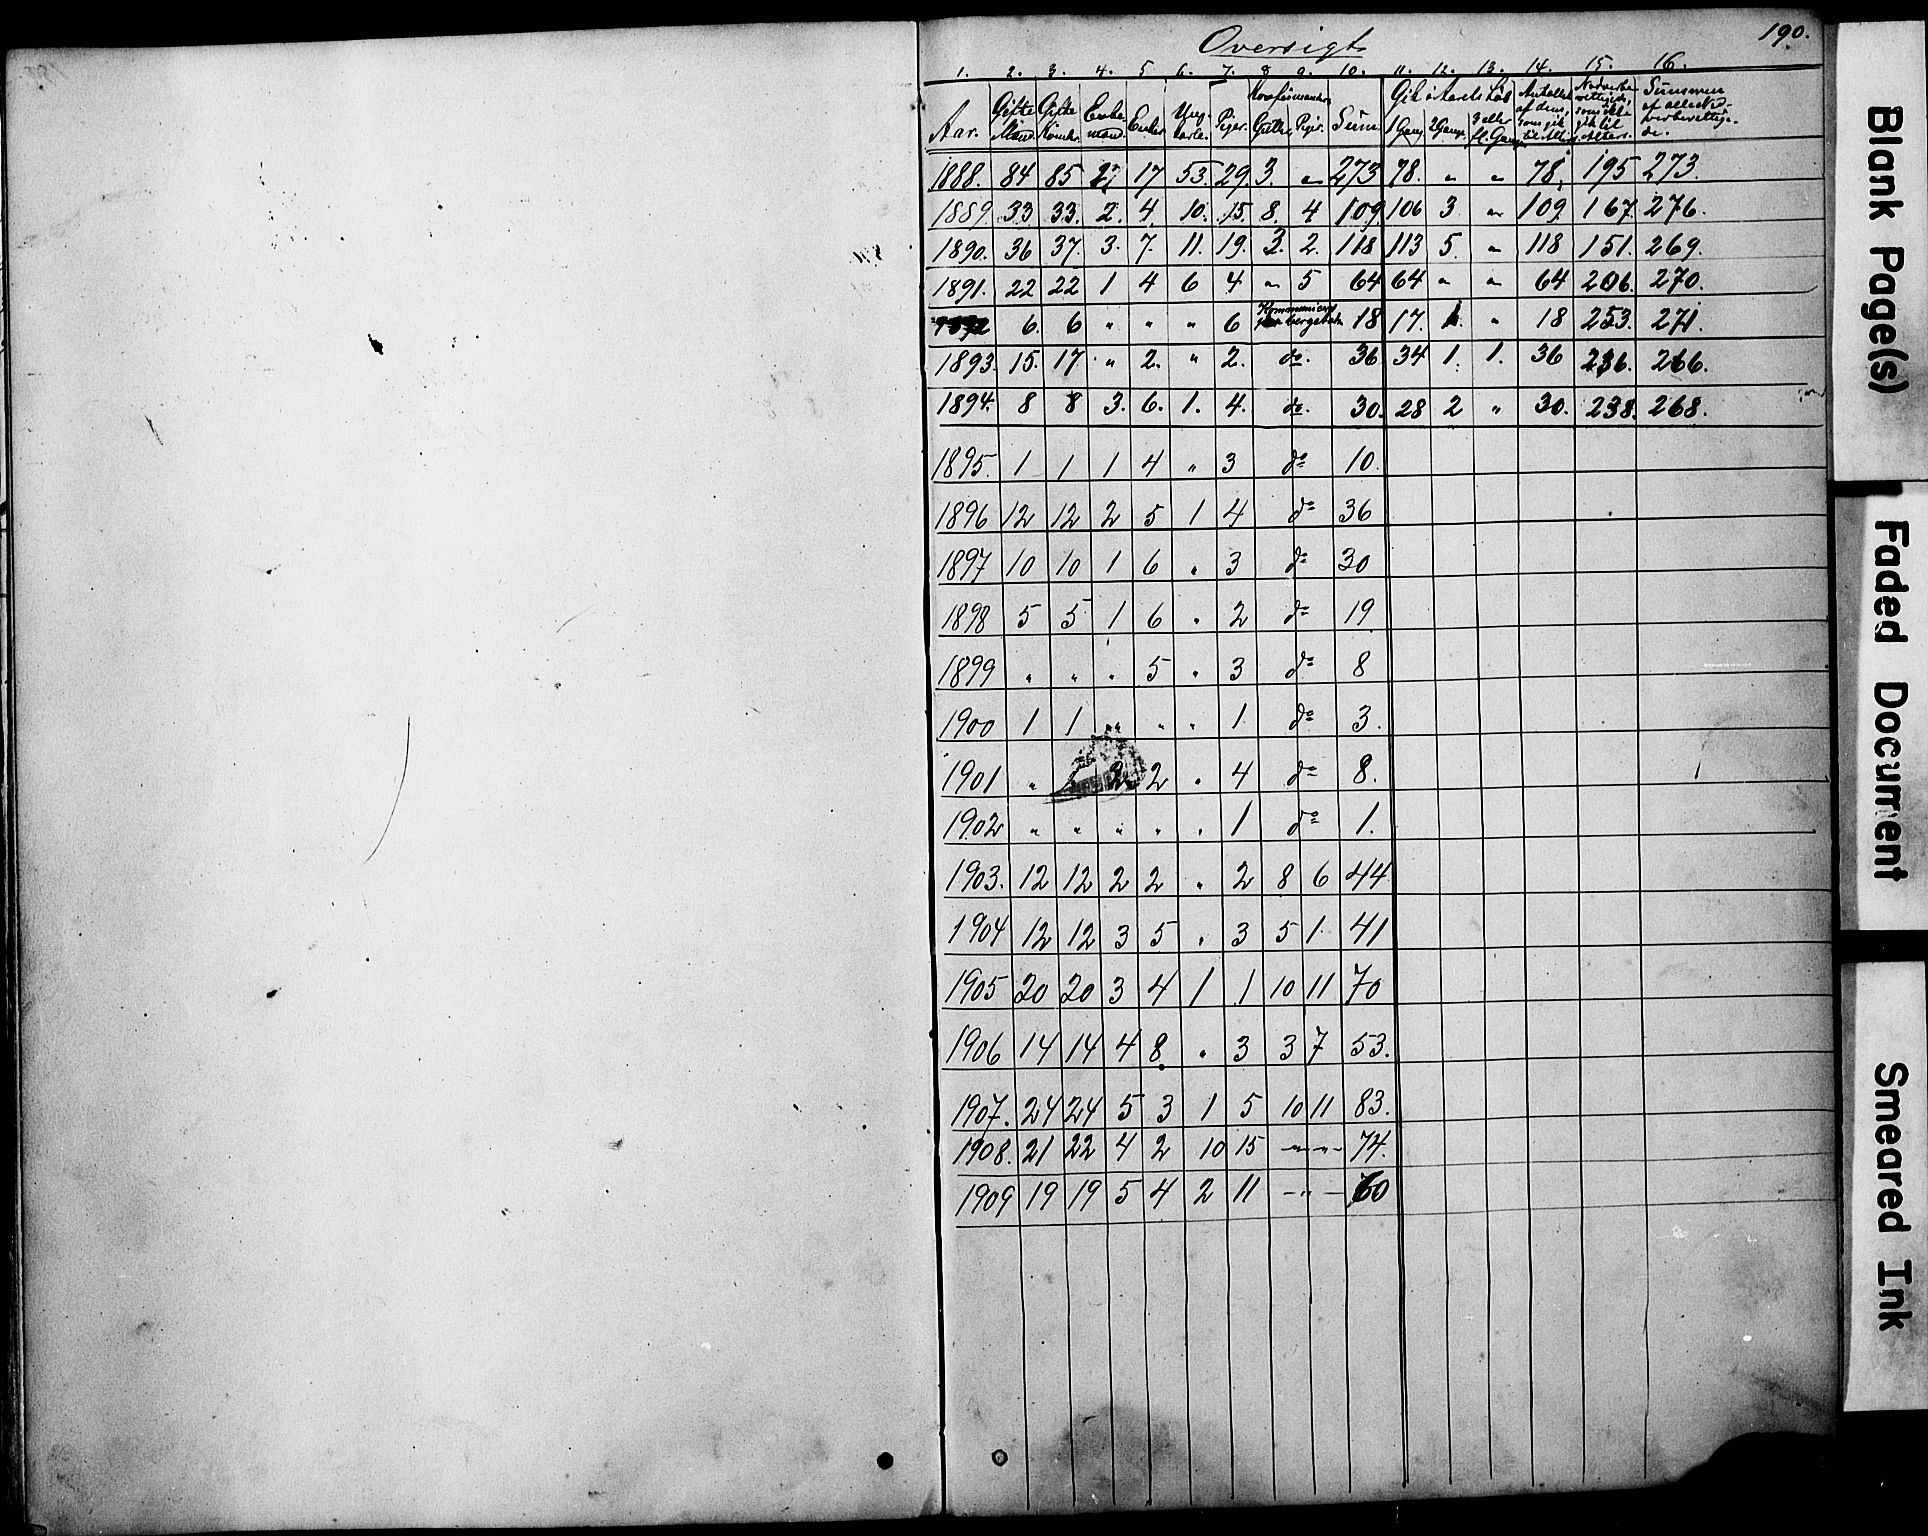 190.
Oversigt
1. 2. 3. 4. 5 6. 7. 8 9. 10. 11. 12. 13. 14. 15. 16.
Aar. Gifte Mænd Gifte Kvinder Enke-mænd. Enker Ung-karle. Piger. Konfirmander Gutter Piger. Sum. Gik i Aarets Løb 1 Gang 2 Gange 3 eller fl. Gange Antallet af dem, som gik til Alters. som ikke gik til Alters. Summen af alle
1888. 84 85 27 17 53. 29. 3. " 273 78. " " 78. 195 273.
1889. 33 33. 2. 4. 10. 15. 8. 4 109. 106 3 " 109. 167. 276.
1890. 36 37. 3. 7. 11. 19. 3. 2. 118 113 5. " 118 151. 269.
1891. 22 22 1 4 6 4 " 5 64 64 " " 64 206. 270.
1892 6. 6 " " " 6 18 17. 1. " 18 253. 271.
1893. 15. 17 " 2. " 2. do. 36 34 1. 1. 36 236. 266.
1894. 8 8 3. 6. 1. 4. do. 30. 28 2 " 30. 238. 268.
1895. 1 1 1 4 " 3 do 10.
1896 12 12 2 5 1 4 do 36
1897 10 10 1 6 " 3 do 30
1898 5 5 1 6 " 2 do 19
1899 " " " 5 " 3 do 8
1900 1 1 " " " 1 do 3.
1901 " 2 2 " 4 do 8.
1902 " " " " " 1 do 1.
1903. 12 12 2 2 " 2 8 6 44
1904 12 12 3 5 " 3 5 1 41
1905 20 20 3 4 1 1 10 11 70
1906 14 14 4 8 " 3 3 7 53.
1907. 24 24 5 3 1 5 10 11 83.
1908. 21 22 4 2 10 15 -"-"- 74.
1909 19 19 5 4 2 11 -"- 60
Blank Page(s)
Faded Document
Smeared Ink